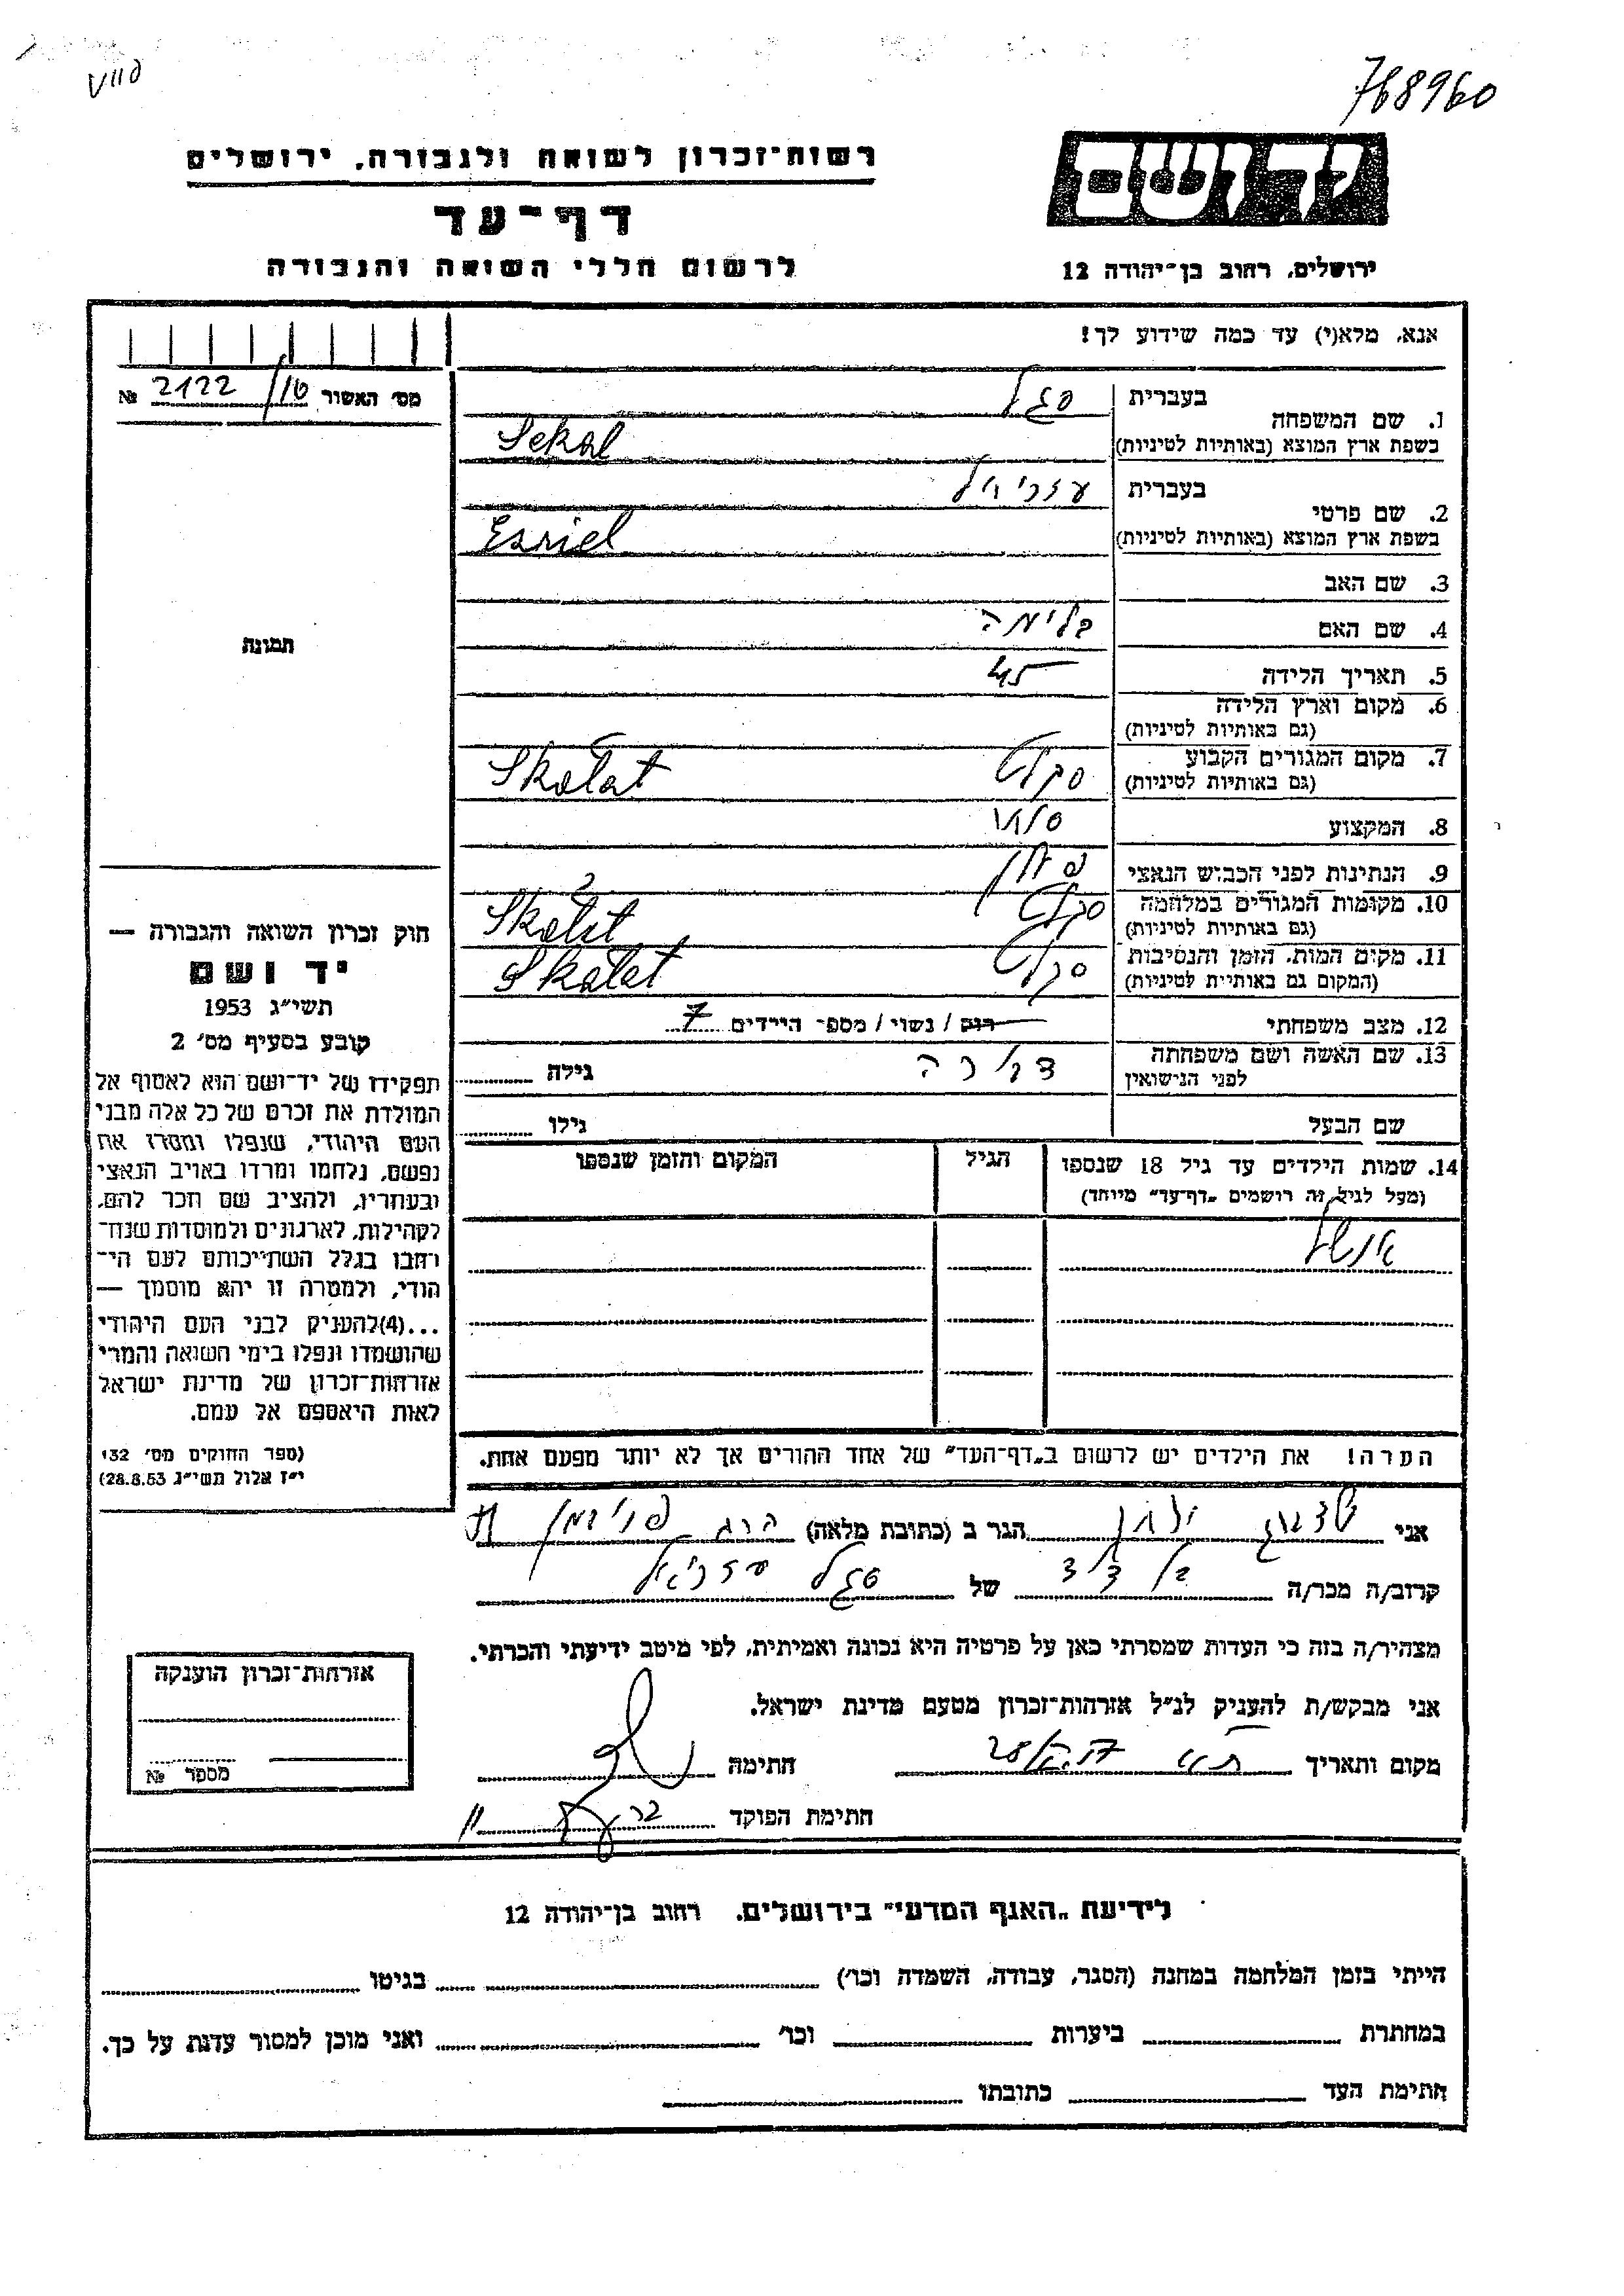 768960
יד ושם
רשות-זכרון לשואה ולגבורה, ירושלים
דף-עד
לרשום חללי השואה והגבורה
ירושלים, רחוב בן-יהודה 12
אנא, מלא(י) עד כמה שידוע לך!
מס׳ האשור 2122 №
1. שם המשפחה
בעברית סגל
בשפת ארץ המוצא (באותיות לטיניות) Sekal
2. שם פרטי
בעברית עזריאל
בשפת ארץ המוצא (באותיות לטיניות) Esriel
3. שם האב
4. שם האם בלימה
5. תאריך הלידה 45
6. מקום וארץ הלידה
(גם באותיות לטיניות)
7. מקום המגורים הקבוע סקלט Skałat
(גם באותיות לטיניות)
8. המקצוע סוחר
9. הנתינות לפני הכבוש הנאצי פולין
10. מקומות המגורים במלחמה סקלט Skałat
(גם באותיות לטיניות)
11. מקום המות, הזמן והנסיבות סקלט Skałat
(המקום גם באותיות לטיניות)
12. מצב משפחתי רווק / נשוי / מספר הילדים 7
13. שם האשה ושם משפחתה
לפני הנישואין
גילה
שם הבעל גילו
14. שמות הילדים עד גיל 18 שנספו הגיל המקום והזמן שנספו
(מעל לגיל זה רושמים „דף-עד" מיוחד)
אנשל
הערה! את הילדים יש לרשום ב„דף-העד" של אחד ההורים אך לא יותר מפעם אחת.
תמונה
חוק זכרון השואה והגבורה —
יד ושם
תשי״ג 1953
קובע בסעיף מס׳ 2
תפקידו של יד-ושם הוא לאסוף אל
המולדת את זכרם של כל אלה מבני
העם היהודי, שנפלו ומסרו את
נפשם, נלחמו ומרדו באויב הנאצי
ובעוזריו, ולהציב שם וזכר להם,
לקהילות, לארגונים ולמוסדות שנח-
רבו בגלל השתייכותם לעם הי-
הודי, ולמטרה זו יהא מוסמך —
...(4)להעניק לבני העם היהודי
שהושמדו ונפלו בימי השואה והמרי
אזרחות-זכרון של מדינת ישראל
לאות היאספם אל עמם.
(ספר החוקים מס׳ 132
י״ז אלול תשי״ג 28.8.53)
אני הגר ב (כתובת מלאה)
קרוב/ה מכר/ה בן דוד של סגל עזריאל
מצהיר/ה בזה כי העדות שמסרתי כאן על פרטיה היא נכונה ואמיתית, לפי מיטב ידיעתי והכרתי.
אני מבקש/ת להעניק לנ״ל אזרחות-זכרון מטעם מדינת ישראל.
מקום ותאריך חתימה
חתימת הפוקד
אזרחות-זכרון הוענקה
מספר №
לידיעת „האגף המדעי" בירושלים, רחוב בן-יהודה 12
הייתי בזמן המלחמה במחנה (הסגר, עבודה, השמדה וכו׳) בגיטו
במחתרת ביערות וכו׳ ואני מוכן למסור עדות על כך.
חתימת העד כתובתו